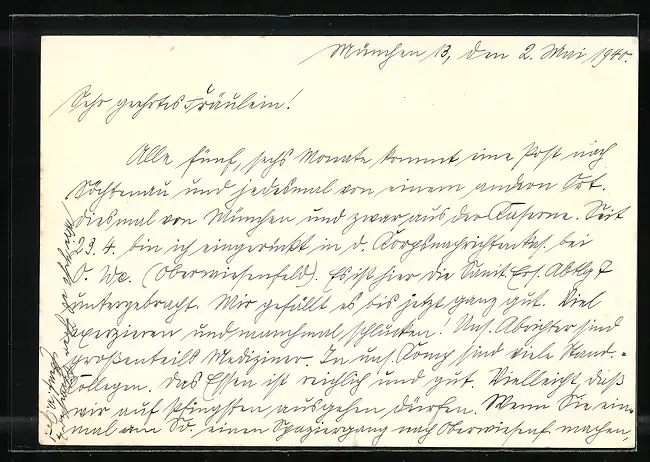 München 13, den 2. Mai 1940.
Sehr geehrtes Fräulein!
Alle fünf, sechs Monate kommt eine Post nach
Söchtenau und jedesmal von einem andern Ort.
diesmal von München und zwar aus der Kaserne. Seit
23.4. bin ich eingerückt in d. Korpsnachrichtenkas. bei
O. We. (Oberwiesenfeld). Es ist hier die Sanit. Ers. Abtlg 7
untergebracht. Mir gefällt es bis jetzt ganz gut. Viel
exerzieren und manchmal schlucken! Uns. Abrichter sind
großenteils Mediziner. In uns. Komp sind viele Stand.-
Kollegen. Das Essen ist reichlich und gut. Vielleicht, daß
wir auf Pfingsten ausgehen dürfen. Wenn Sie ein-
mal am So. einen Spaziergang nach Oberwiesenf. machen,